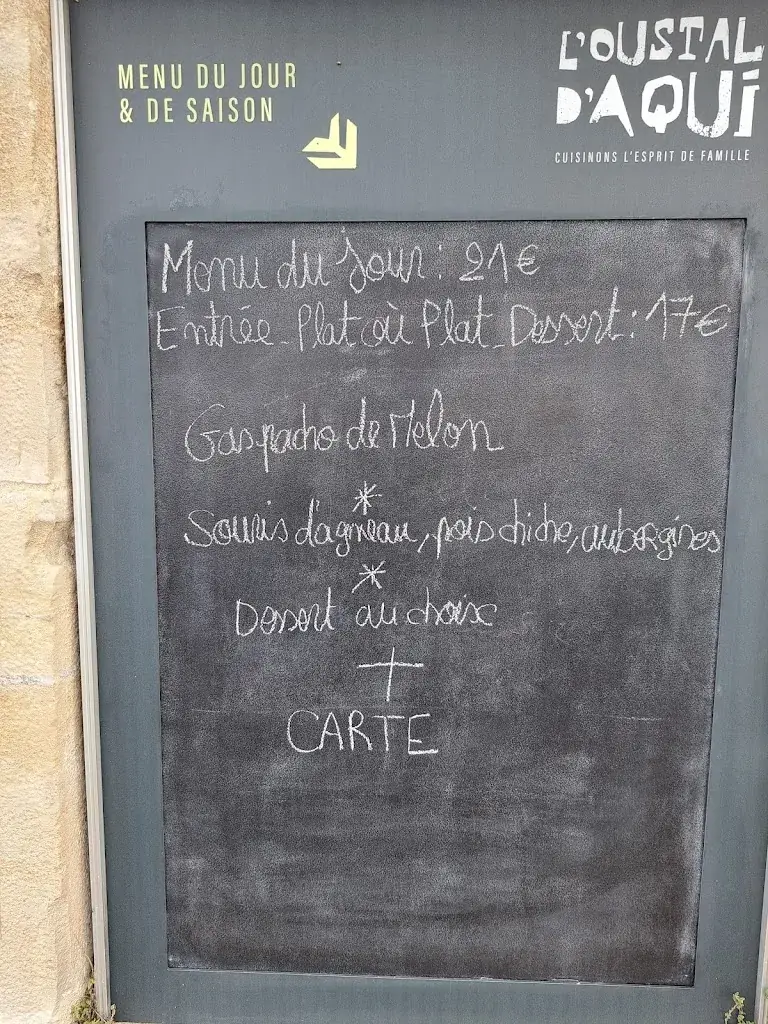 MENU DU JOUR
& DE SAISON
L'OUSTAL
D'AQUÍ
CUISINONS L'ESPRIT DE FAMILLE
Menu du Jour : 21€
Entrée - Plat où Plat - Dessert : 17€
Gaspacho de Melon
*
Souris d'agneau, pois chiche, aubergines
*
Dessert au choix
+
CARTE